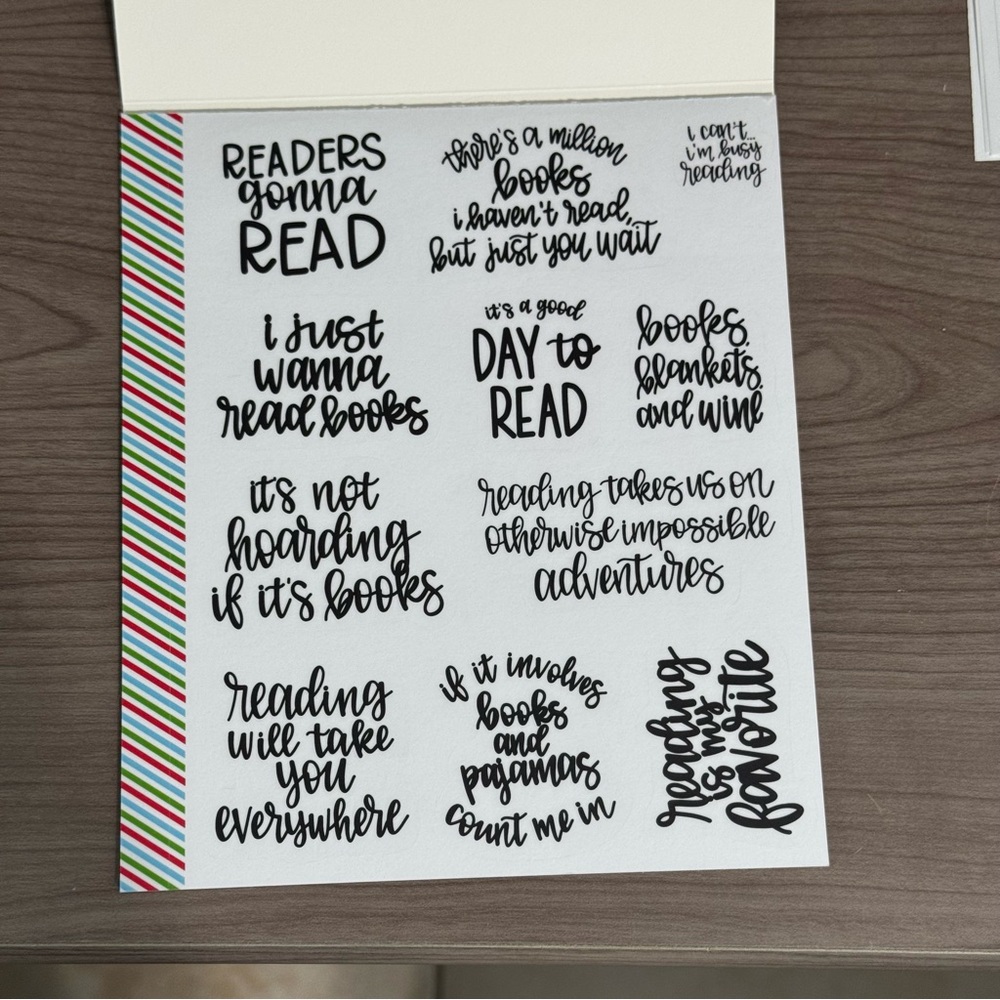 READERS
gonna
READ
there's a million
books
i haven't read,
but just you wait
i can't...
i'm busy
reading
i just
wanna
read books
it's a good
DAY to
READ
books.
blankets.
and wine
it's not
hoarding
if it's books
reading takes us on
otherwise impossible
adventures
reading
will take
you
everywhere
if it involves
books
and
pajamas
count me in
reading
is my
favorite